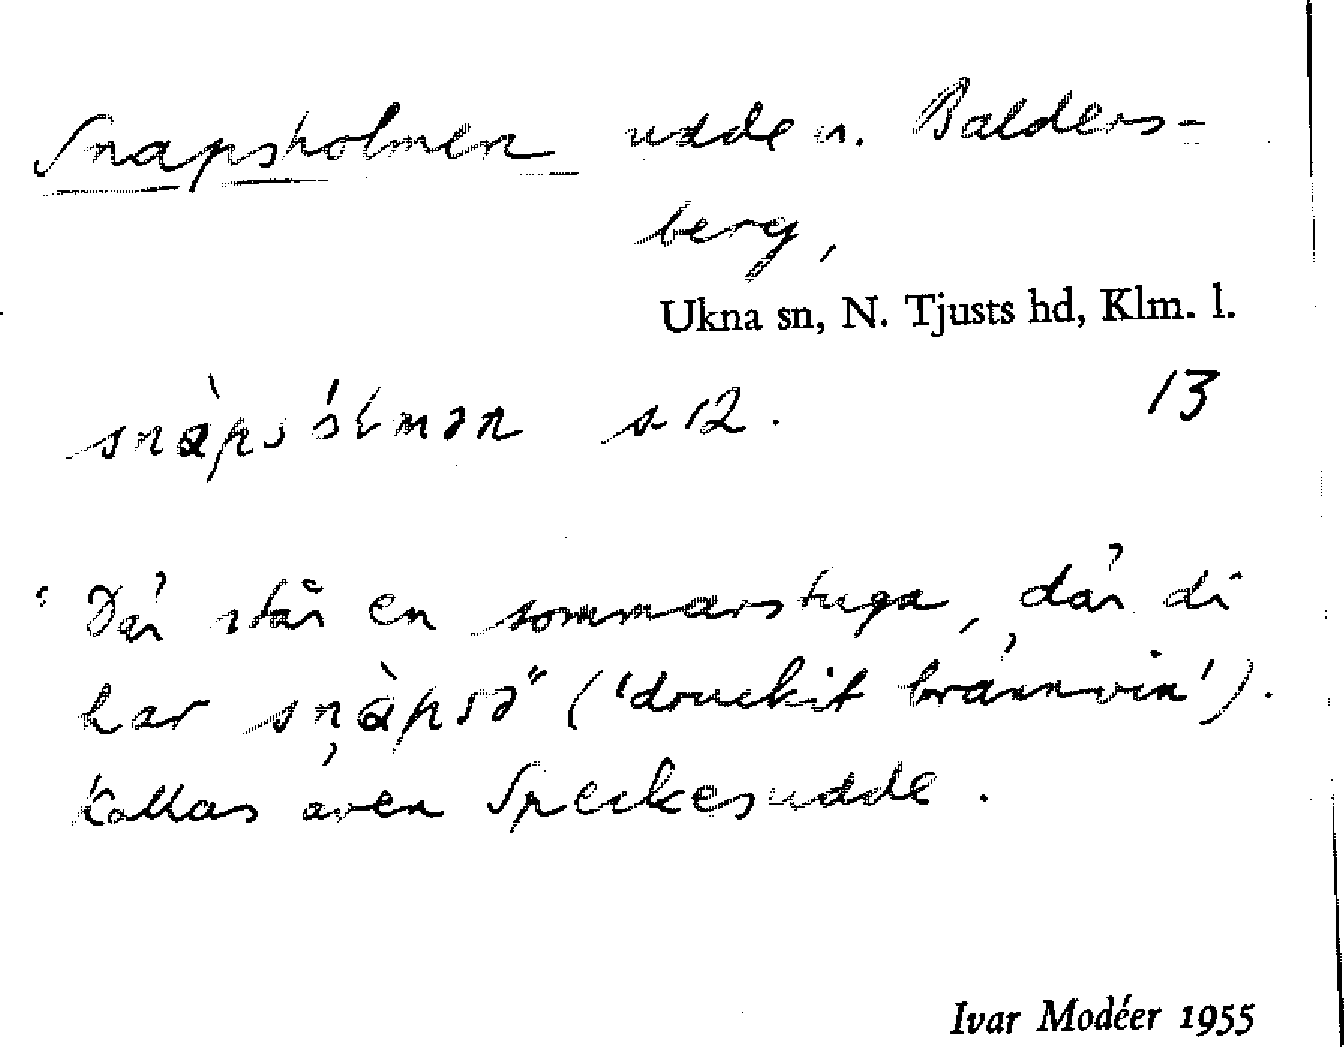 Snapsholmen udde n. Balders-
berg,
Ukna sn, N. Tjusts hd, Klm. l.
snàpsólmən s 12. 13
"Där står en sommarstuga, där di
har snàpsə" ('druckit brännvin').
Kallas även Speckesudde.
Ivar Modéer 1955